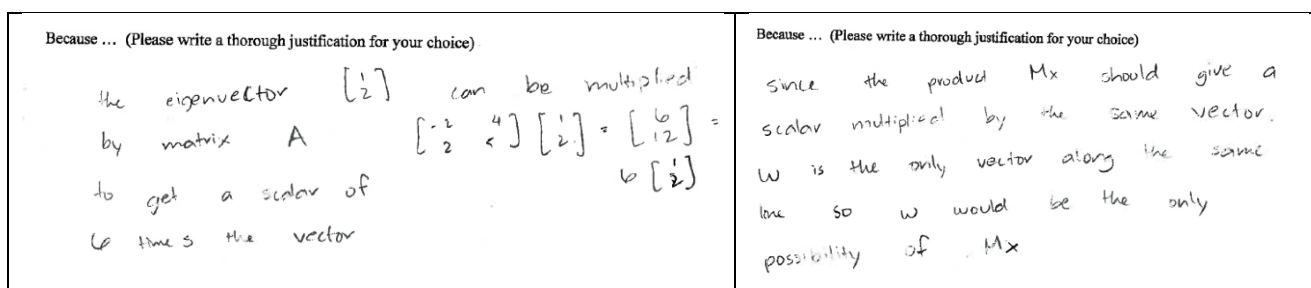 Because ... (Please write a thorough justification for your choice)
the eigenvector [1 2] can be multiplied
by matrix A [-2 4 2 5] [1 2] = [6 12] =
6 [1 2]
to get a scalar of
6 times the vector
Because ... (Please write a thorough justification for your choice)
since the product Mx should give a
scalar multiplied by the same vector.
w is the only vector along the same
line so w would be the only
possibility of Mx